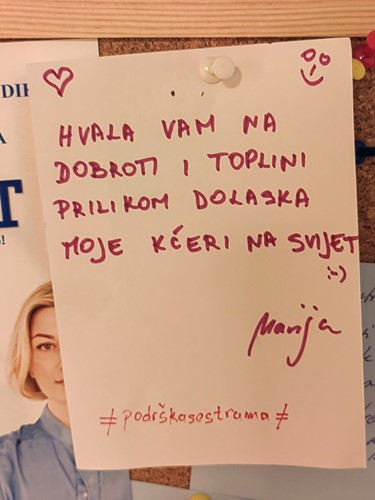 HVALA VAM NA
DOBROTI I TOPLINI
PRILIKOM DOLASKA
MOJE KĆERI NA SVIJET
:-)
Marija
#podrškasestrama#